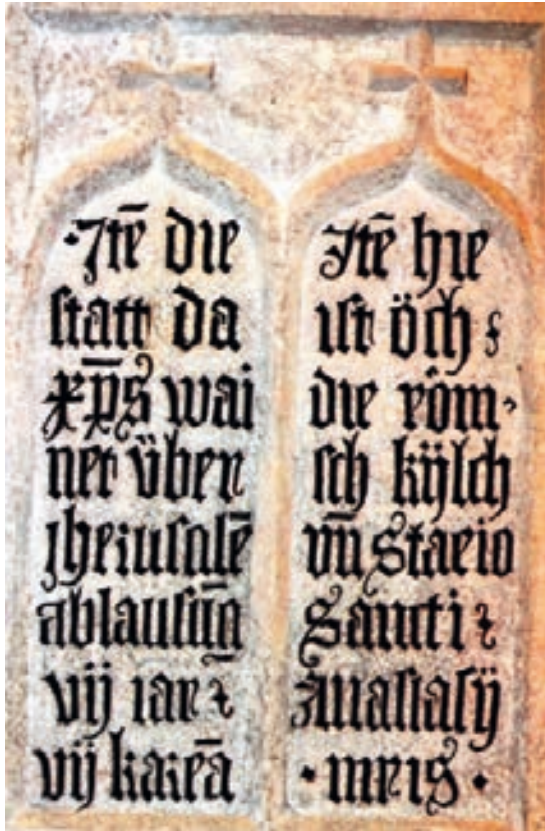 ·Jtē die
statt da
xp̄s wai
net über
jherusalē
ablausūn̄
vij iar
vij karēā
Jtē hie
ist öch
die röm
sch kÿlch
vn̄ stacio
Sancti
Anastasÿ
· mr̄is ·